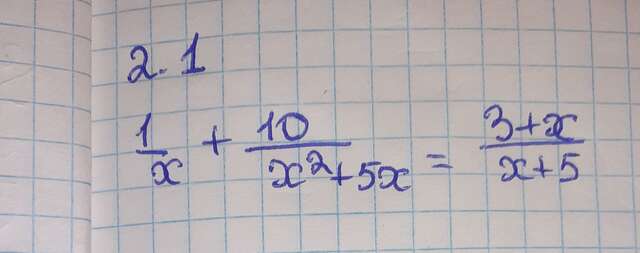 2.1
1/x + 10/(x²+5x) = (3+x)/(x+5)